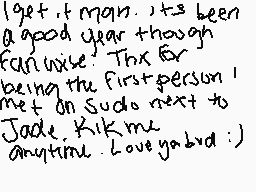 I get it man. its been
a good year though
fan wise. Thx for
being the first person I
met on sudo next to
Jade. Kik me
anytime. Love ya bud :)